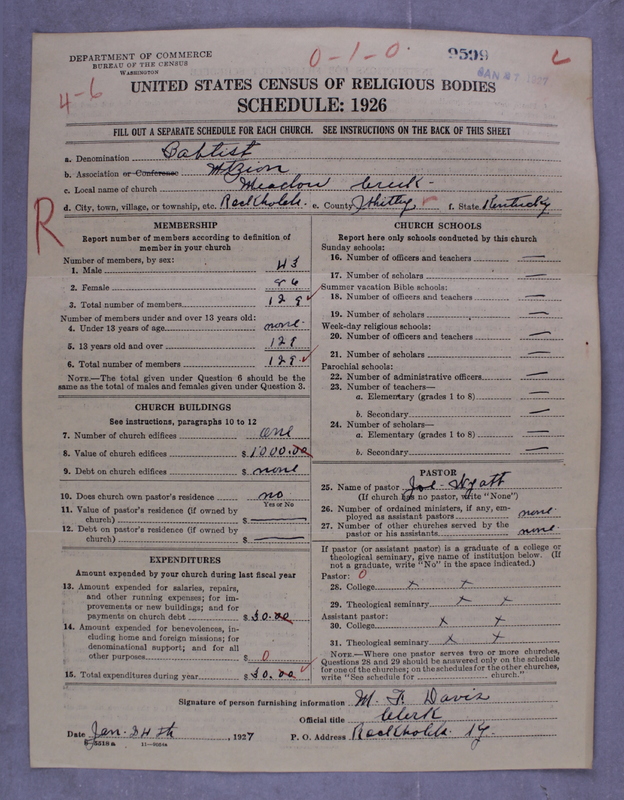 DEPARTMENT OF COMMERCE
BUREAU OF THE CENSUS
WASHINGTON
0-1-0.
9599
JAN 27 1927
4-6
UNITED STATES CENSUS OF RELIGIOUS BODIES
SCHEDULE: 1926
FILL OUT A SEPARATE SCHEDULE FOR EACH CHURCH. SEE INSTRUCTIONS ON THE BACK OF THIS SHEET
a. Denomination Baptist
b. Association or Conference Mt Zion
c. Local name of church Meadow Creek
d. City, town, village, or township, etc. Rockholds. e. County Whitley f. State Kentucky
R
MEMBERSHIP
Report number of members according to definition of
member in your church
Number of members, by sex:
1. Male 43
2. Female 86
3. Total number of members 129
Number of members under and over 13 years old:
4. Under 13 years of age none
5. 13 years old and over 129
6. Total number of members 129
NOTE.—The total given under Question 6 should be
same as the total of males and females given under Question 3.
CHURCH BUILDINGS
See instructions, paragraphs 10 to 12
7. Number of church edifices one
8. Value of church edifices $1000.00
9. Debt on church edifices $ none
10. Does church own pastor's residence no
Yes or No
11. Value of pastor's residence (if owned by
church) $
12. Debt on pastor's residence (if owned by
church) $
EXPENDITURES
Amount expended by your church during last fiscal year
13. Amount expended for salaries, repairs,
and other running expenses; for im-
provements or new buildings; and for
payments on church debt $30.00
14. Amount expended for benevolences, in-
cluding home and foreign missions; for
denominational support; and for all
other purposes $ 0
15. Total expenditures during year $30.00
CHURCH SCHOOLS
Report here only schools conducted by this church
Sunday schools:
16. Number of officers and teachers —
17. Number of scholars —
Summer vacation Bible schools:
18. Number of officers and teachers —
19. Number of scholars —
Week-day religious schools:
20. Number of officers and teachers —
21. Number of scholars —
Parochial schools:
22. Number of administrative officers —
23. Number of teachers—
a. Elementary (grades 1 to 8) —
b. Secondary —
24. Number of scholars—
a. Elementary (grades 1 to 8) —
b. Secondary —
PASTOR
25. Name of pastor Joe Wyatt
(If church has no pastor, write "None")
26. Number of ordained ministers, if any, em-
ployed as assistant pastors none
27. Number of other churches served by the
pastor or his assistants none
If pastor (or assistant pastor) is a graduate of a college or
theological seminary, give name of institution below. (If
not a graduate, write "No" in the space indicated.)
Pastor: 0
28. College x x
29. Theological seminary x x
Assistant pastor:
30. College x x
31. Theological seminary x x
NOTE.—Where one pastor serves two or more churches,
Questions 28 and 29 should be answered only on the schedule
for one of the churches; on the schedules for the other churches,
write "See schedule for church."
Signature of person furnishing information M. F. Davis
Official title Clerk
Date Jan. 24th, 1927 P. O. Address Rockholds Ky.
8-5518a